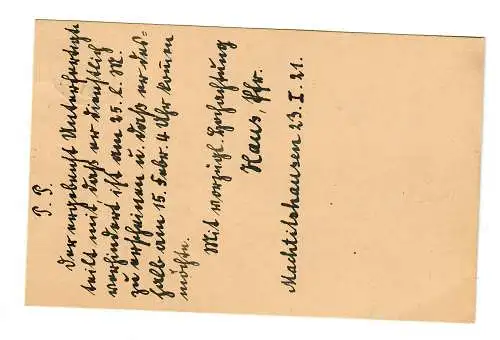 P. P.
Der ergebenst Unterfertigte
teilt mit, daß er dienstlich
verhindert ist am 25. l. M.
zu erscheinen u. daß er des=
halb am 15. Febr. 4 Uhr komen
möchte.
Mit vorzügl. Hochachtung
Haus, Pfr.
Machtilshausen 23. I. 21.